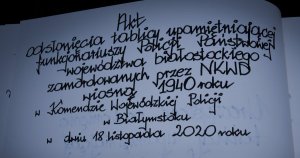 Akt
odsłonięcia tablicy upamiętniającej
funkcjonariuszy Policji Państwowej
województwa białostockiego
zamordowanych przez NKWD
wiosną 1940 roku
w Komendzie Wojewódzkiej Policji
w Białymstoku
w dniu 18 listopada 2020 roku